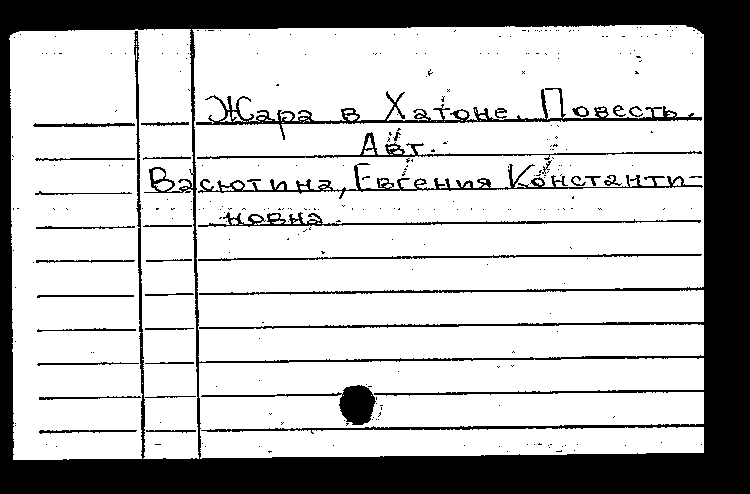 Жара в Хатоне. Повесть.
Авт.
Васютина, Евгения Константи-
новна.